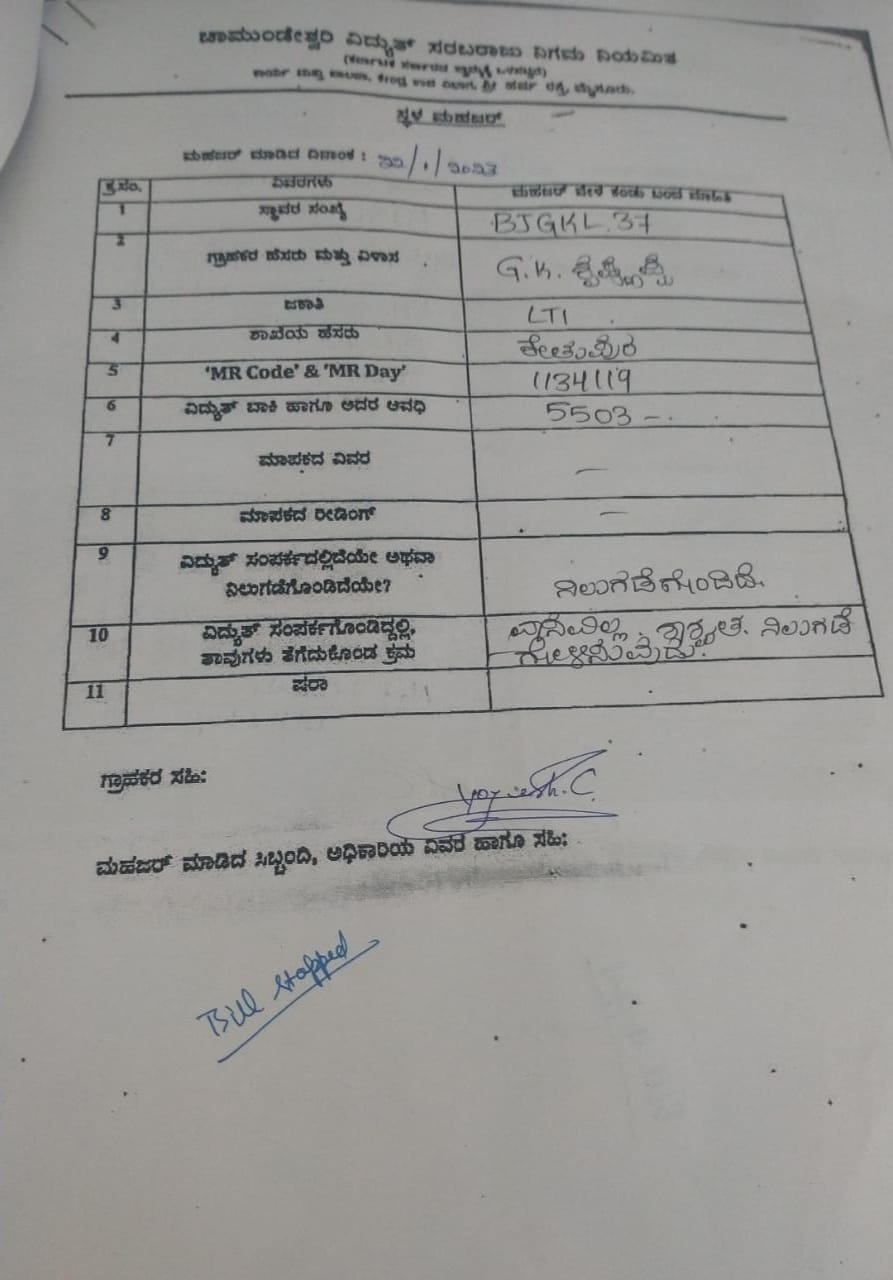 ಚಾಮುಂಡೇಶ್ವರಿ ವಿದ್ಯುತ್ ಸರಬರಾಜು ನಿಗಮ ನಿಯಮಿತ
(ಕರ್ನಾಟಕ ಸರ್ಕಾರದ ಸ್ವಾಮ್ಯಕ್ಕೆ ಒಳಪಟ್ಟಿದೆ)
ಸ್ಥಳ ಮಹಜರ್
ಮಹಜರ್ ಮಾಡಿದ ದಿನಾಂಕ :
ಕ್ರ.ಸಂ. ವಿವರಗಳು ಮಹಜರ್ ವೇಳೆ ಕಂಡು ಬಂದ ಮಾಹಿತಿ
1 ಸ್ಥಾವರ ಸಂಖ್ಯೆ BJGKL.37
2 ಗ್ರಾಹಕರ ಹೆಸರು ಮತ್ತು ವಿಳಾಸ G.K.
3 ಜಕಾತಿ LT1
4 ಶಾಖೆಯ ಹೆಸರು
5 'MR Code' & 'MR Day' 1134119
6 ವಿದ್ಯುತ್ ಬಾಕಿ ಹಾಗೂ ಅದರ ಅವಧಿ 5503 -.
7 ಮಾಪಕದ ವಿವರ —
8 ಮಾಪಕದ ರೀಡಿಂಗ್ —
9 ವಿದ್ಯುತ್ ಸಂಪರ್ಕದಲ್ಲಿದೆಯೇ ಅಥವಾ
ನಿಲುಗಡೆಗೊಂಡಿದೆಯೇ? ನಿಲುಗಡೆಗೊಂಡಿದೆ.
10 ವಿದ್ಯುತ್ ಸಂಪರ್ಕಗೊಂಡಿದ್ದಲ್ಲಿ, ಶಾಶ್ವತ. ನಿಲುಗಡೆ
ತಾವುಗಳು ತೆಗೆದುಕೊಂಡ ಕ್ರಮ
11 ಷರಾ
ಗ್ರಾಹಕರ ಸಹಿ:
Yogeesh.C.
ಮಹಜರ್ ಮಾಡಿದ ಸಿಬ್ಬಂದಿ, ಅಧಿಕಾರಿಯ ವಿವರ ಹಾಗೂ ಸಹಿ:
Bill stopped